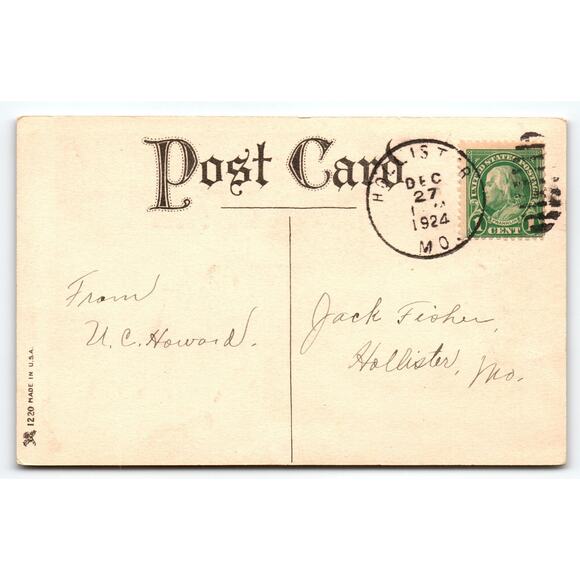 Post Card
HOLLISTER
DEC
27
1924
MO.
UNITED STATES POSTAGE
FRANKLIN
1 CENT 1
From
U. C. Howard.
Jack Fisher,
Hollister, Mo.
1220 MADE IN U.S.A.